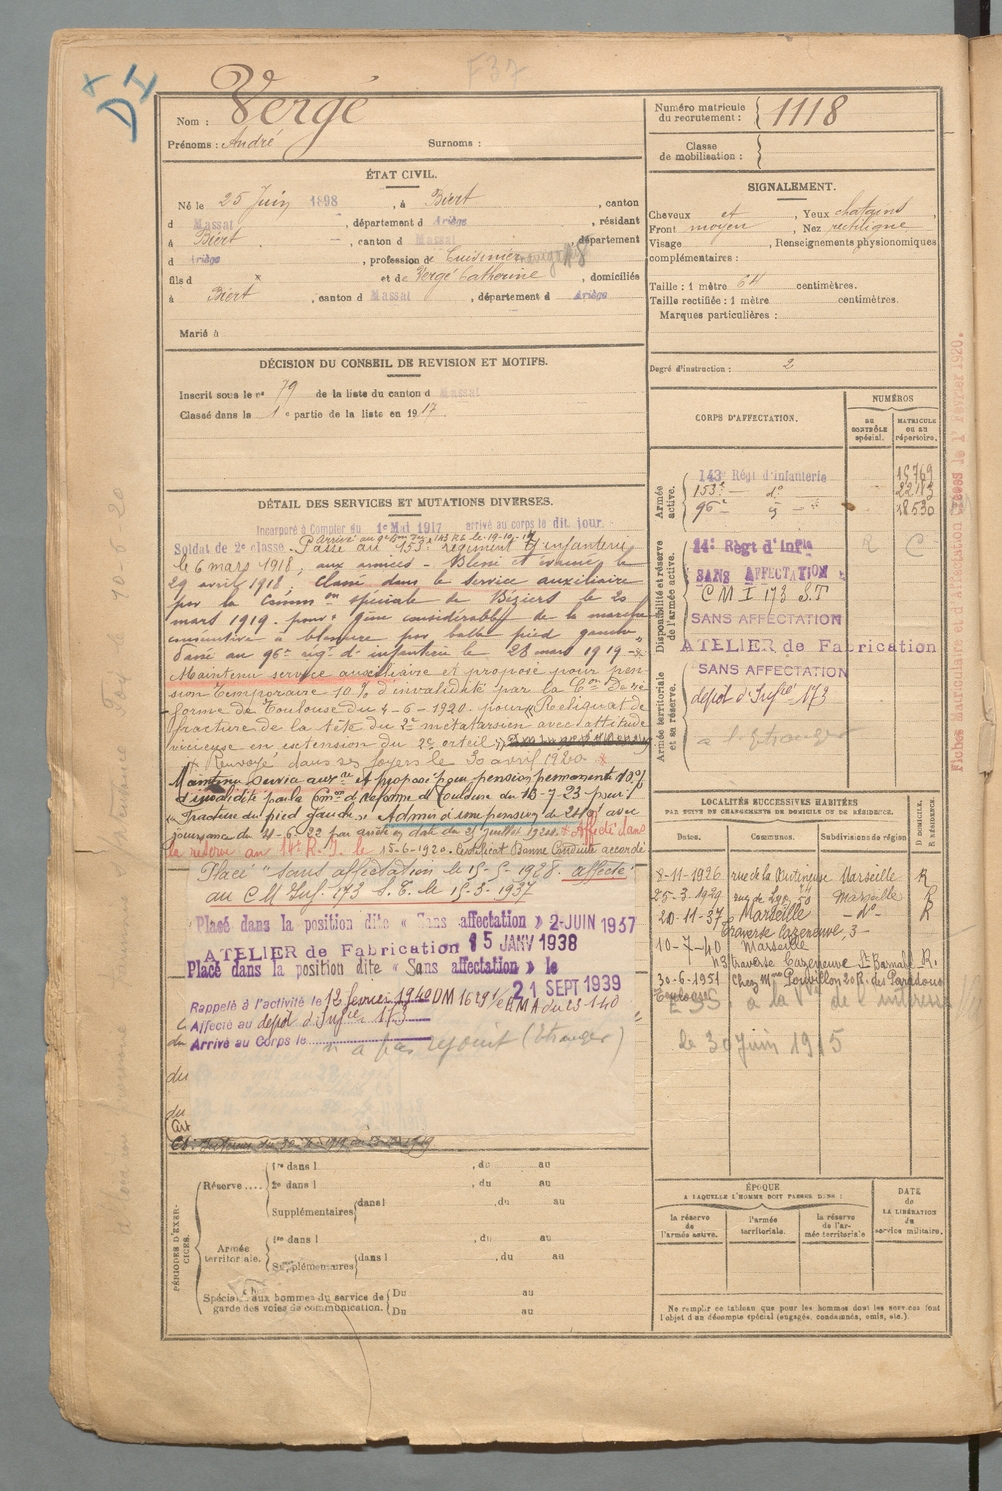 F37
DI
Nom : Vergé
Prénoms : André Surnoms :
Numéro matricule du recrutement : 1118
Classe de mobilisation :
ÉTAT CIVIL.
Né le 25 Juin 1898, à Biert, canton
d Massat, département d Ariège, résidant
à Biert, canton d Massat, département
d Ariège, profession de Cuisinier
fils d × et de Vergé Catherine, domiciliés
à Biert, canton d Massat, département d Ariège
Marié à
SIGNALEMENT.
Cheveux et, Yeux chatains,
Front moyen, Nez rectiligne
Visage, Renseignements physionomiques
complémentaires :
Taille : 1 mètre 64 centimètres.
Taille rectifiée : 1 mètre centimètres.
Marques particulières :
Degré d'instruction : 2
DÉCISION DU CONSEIL DE REVISION ET MOTIFS.
Inscrit sous le n° 79 de la liste du canton d Massat
Classé dans la 1e partie de la liste en 1917.
CORPS D'AFFECTATION.
NUMÉROS
AU CONTRÔLE spécial.
MATRICULE OU AU répertoire.
Armée active.
143e Régt d'infanterie 15769
153e — d° 2213
96e 18530
Disponibilité et réserve de l'armée active.
14e Régt d'Infie R C
SANS AFFECTATION
CM I 173 S.T
SANS AFFECTATION
ATELIER de Fabrication
Armée territoriale et sa réserve.
SANS AFFECTATION
dépot d'Infie 173
à l'Etranger
DÉTAIL DES SERVICES ET MUTATIONS DIVERSES.
Incorporé à Compter du 1e Mai 1917 arrivé au corps le dit jour.
Soldat de 2e classe. Passé au 153e régiment d'infanterie
le 6 mars 1918, aux armées - Blessé et évacué le
29 avril 1918, classé dans le service auxiliaire
par la Comm on spéciale de Béziers le 20
mars 1919. pour gêne considérable de la marche
consécutive à blessure par balle pied gauche,
Passé au 96e rég. d'infanterie le 28 mars 1919
Maintenu service auxiliaire et proposé pour pen-
sion temporaire 10% d'invalidité par la Con De ré-
forme de Toulouse du 4-6-1920. pour "Reliquat de
fracture de la tête du 2e métatarsien avec attitude
vicieuse en extension du 2e orteil"
Renvoyé dans ses foyers le 30 avril 1920
Maintenu service auxre et proposé pour pension permanente 10%
d'invalidité par la Comon de réforme de Toulouse du 13-7-23 pour
"Fracture du pied gauche" Admis à une pension de 240f avec
jouissance du 4-6-22 par arrêté en date du Affecté dans
la réserve au 14e R. I. le 15-6-1920. Certificat Bonne Conduite accordé
Placé "sans affectation le 15-5-1928. affecté
au CM Inf. 173 S.T. le 15-3-1937
Placé dans la position dite « Sans affectation » 2-JUIN 1937
ATELIER de Fabrication 15 JANV 1938
Placé dans la position dite « Sans affectation » le
21 SEPT 1939
Rappelé à l'activité le 12 février 1940 DM
Affecté au dépot d'Infie 173
Arrivé au Corps le n'a pas rejoint (Etranger)
du
du
LOCALITÉS SUCCESSIVES HABITÉES
PAR SUITE DE CHANGEMENTS DE DOMICILE OU DE RÉSIDENCE.
Dates. Communes. Subdivisions de région D DOMICILE. R RÉSIDENCE.
8-11-1926 rue de la Marseille R
25-3-1929 Marseille R
20-11-37 Marseille - d° - R
Traverse Cazeneuve, 3-
10-7-40 Marseille
traverse Cazeneuve St Barnabé R.
30-6-1951 Chez Mme Pouvillon 20 R. des Paradoux
Toulouse
le 30 Juin 1915
PÉRIODES D'EXERCICES.
Réserve....
1re dans l , du au
2e dans l , du au
Supplémentaires dans l , du au
Armée territoriale.
1re dans l , du au
Supplémentaires dans l , du au
Spéciaux aux hommes du service de garde des voies de communication.
Du au
Du au
ÉPOQUE
A LAQUELLE L'HOMME DOIT PASSER DANS :
la réserve de l'armée active.
l'armée territoriale.
la réserve de l'armée territoriale
DATE de LA LIBÉRATION du service militaire.
Ne remplir ce tableau que pour les hommes dont les services font l'objet d'un décompte spécial (engagés, condamnés, omis, etc.).
Fiches Matriculaire et d'Affectation créées le 1er Février 1920.